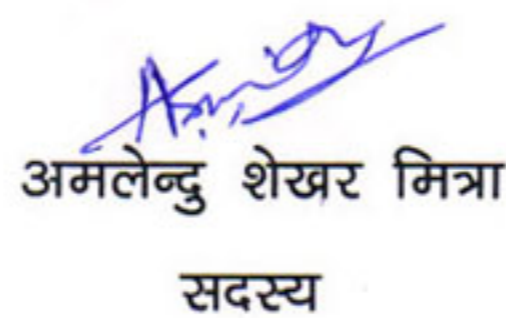 अमलेन्दु शेखर मित्रा
सदस्य